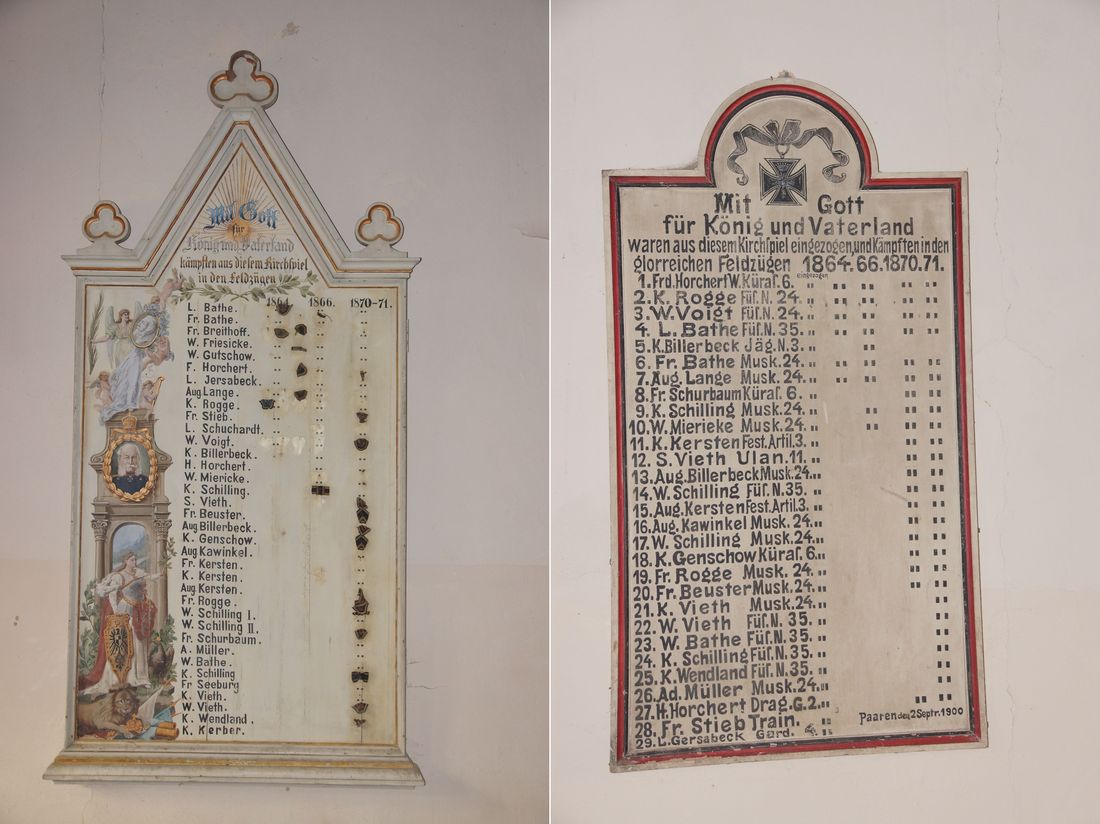 Mit Gott
für
König und Vaterland
kämpften aus diesem Kirchspiel
in den Feldzügen
1864. 1866. 1870-71.
L. Bathe.
Fr. Bathe.
Fr. Breithoff.
W. Friesicke.
W. Gutschow.
F. Horchert.
L. Jersabeck.
Aug Lange.
K. Rogge.
Fr. Stieb.
L. Schuchardt.
W. Voigt.
K. Billerbeck.
H. Horchert.
W. Miericke.
K. Schilling.
S. Vieth.
Fr. Beuster.
Aug Billerbeck.
K. Genschow.
Aug Kawinkel.
Fr. Kersten.
K. Kersten.
Aug Kersten.
Fr. Rogge.
W. Schilling I.
W. Schilling II.
Fr. Schurbaum.
A. Müller.
W. Bathe.
K. Schilling
Fr Seeburg
K. Vieth.
W. Vieth.
K. Wendland.
K. Kerber.
Mit Gott
für König und Vaterland
waren aus diesem Kirchspiel eingezogen, und Kämpften in den
glorreichen Feldzügen 1864. 66. 1870. 71.
eingezogen
1. Frd. Horchert W. Küraſ. 6. "
2. K. Rogge Füſ. N. 24. "
3. W. Voigt Füſ. N. 24. "
4. L. Bathe Füſ. N. 35. "
5. K. Billerbeck Jäg. N. 3 "
6. Fr. Bathe Musk. 24. "
7. Aug. Lange Musk. 24. "
8. Fr. Schurbaum Küraſ. 6 "
9. K. Schilling Musk. 24 "
10. W. Mierieke Musk. 24 "
11. K. Kersten Fest. Artil. 3 "
12. S. Vieth Ulan. 11. "
13. Aug. Billerbeck Musk. 24 "
14. W. Schilling Füſ. N. 35. "
15. Aug. Kersten Fest. Artil. 3. "
16. Aug. Kawinkel Musk. 24 "
17. W. Schilling Musk. 24. "
18. K. Genschow Küraſ. 6 "
19. Fr. Rogge Musk. 24. "
20. Fr. Beuster Musk. 24. "
21. K. Vieth Musk. 24. "
22. W. Vieth Füſ. N. 35. "
23. W. Bathe Füſ. N. 35. "
24. K. Schilling Füſ. N. 35. "
25. K. Wendland Füſ. N. 35. "
26. Ad. Müller Musk. 24. "
27. H. Horchert Drag. G. 2. "
28. Fr. Stieb Train. "
29. L. Gersabeck Gard. 4. "
Paaren den 2 Septr. 1900